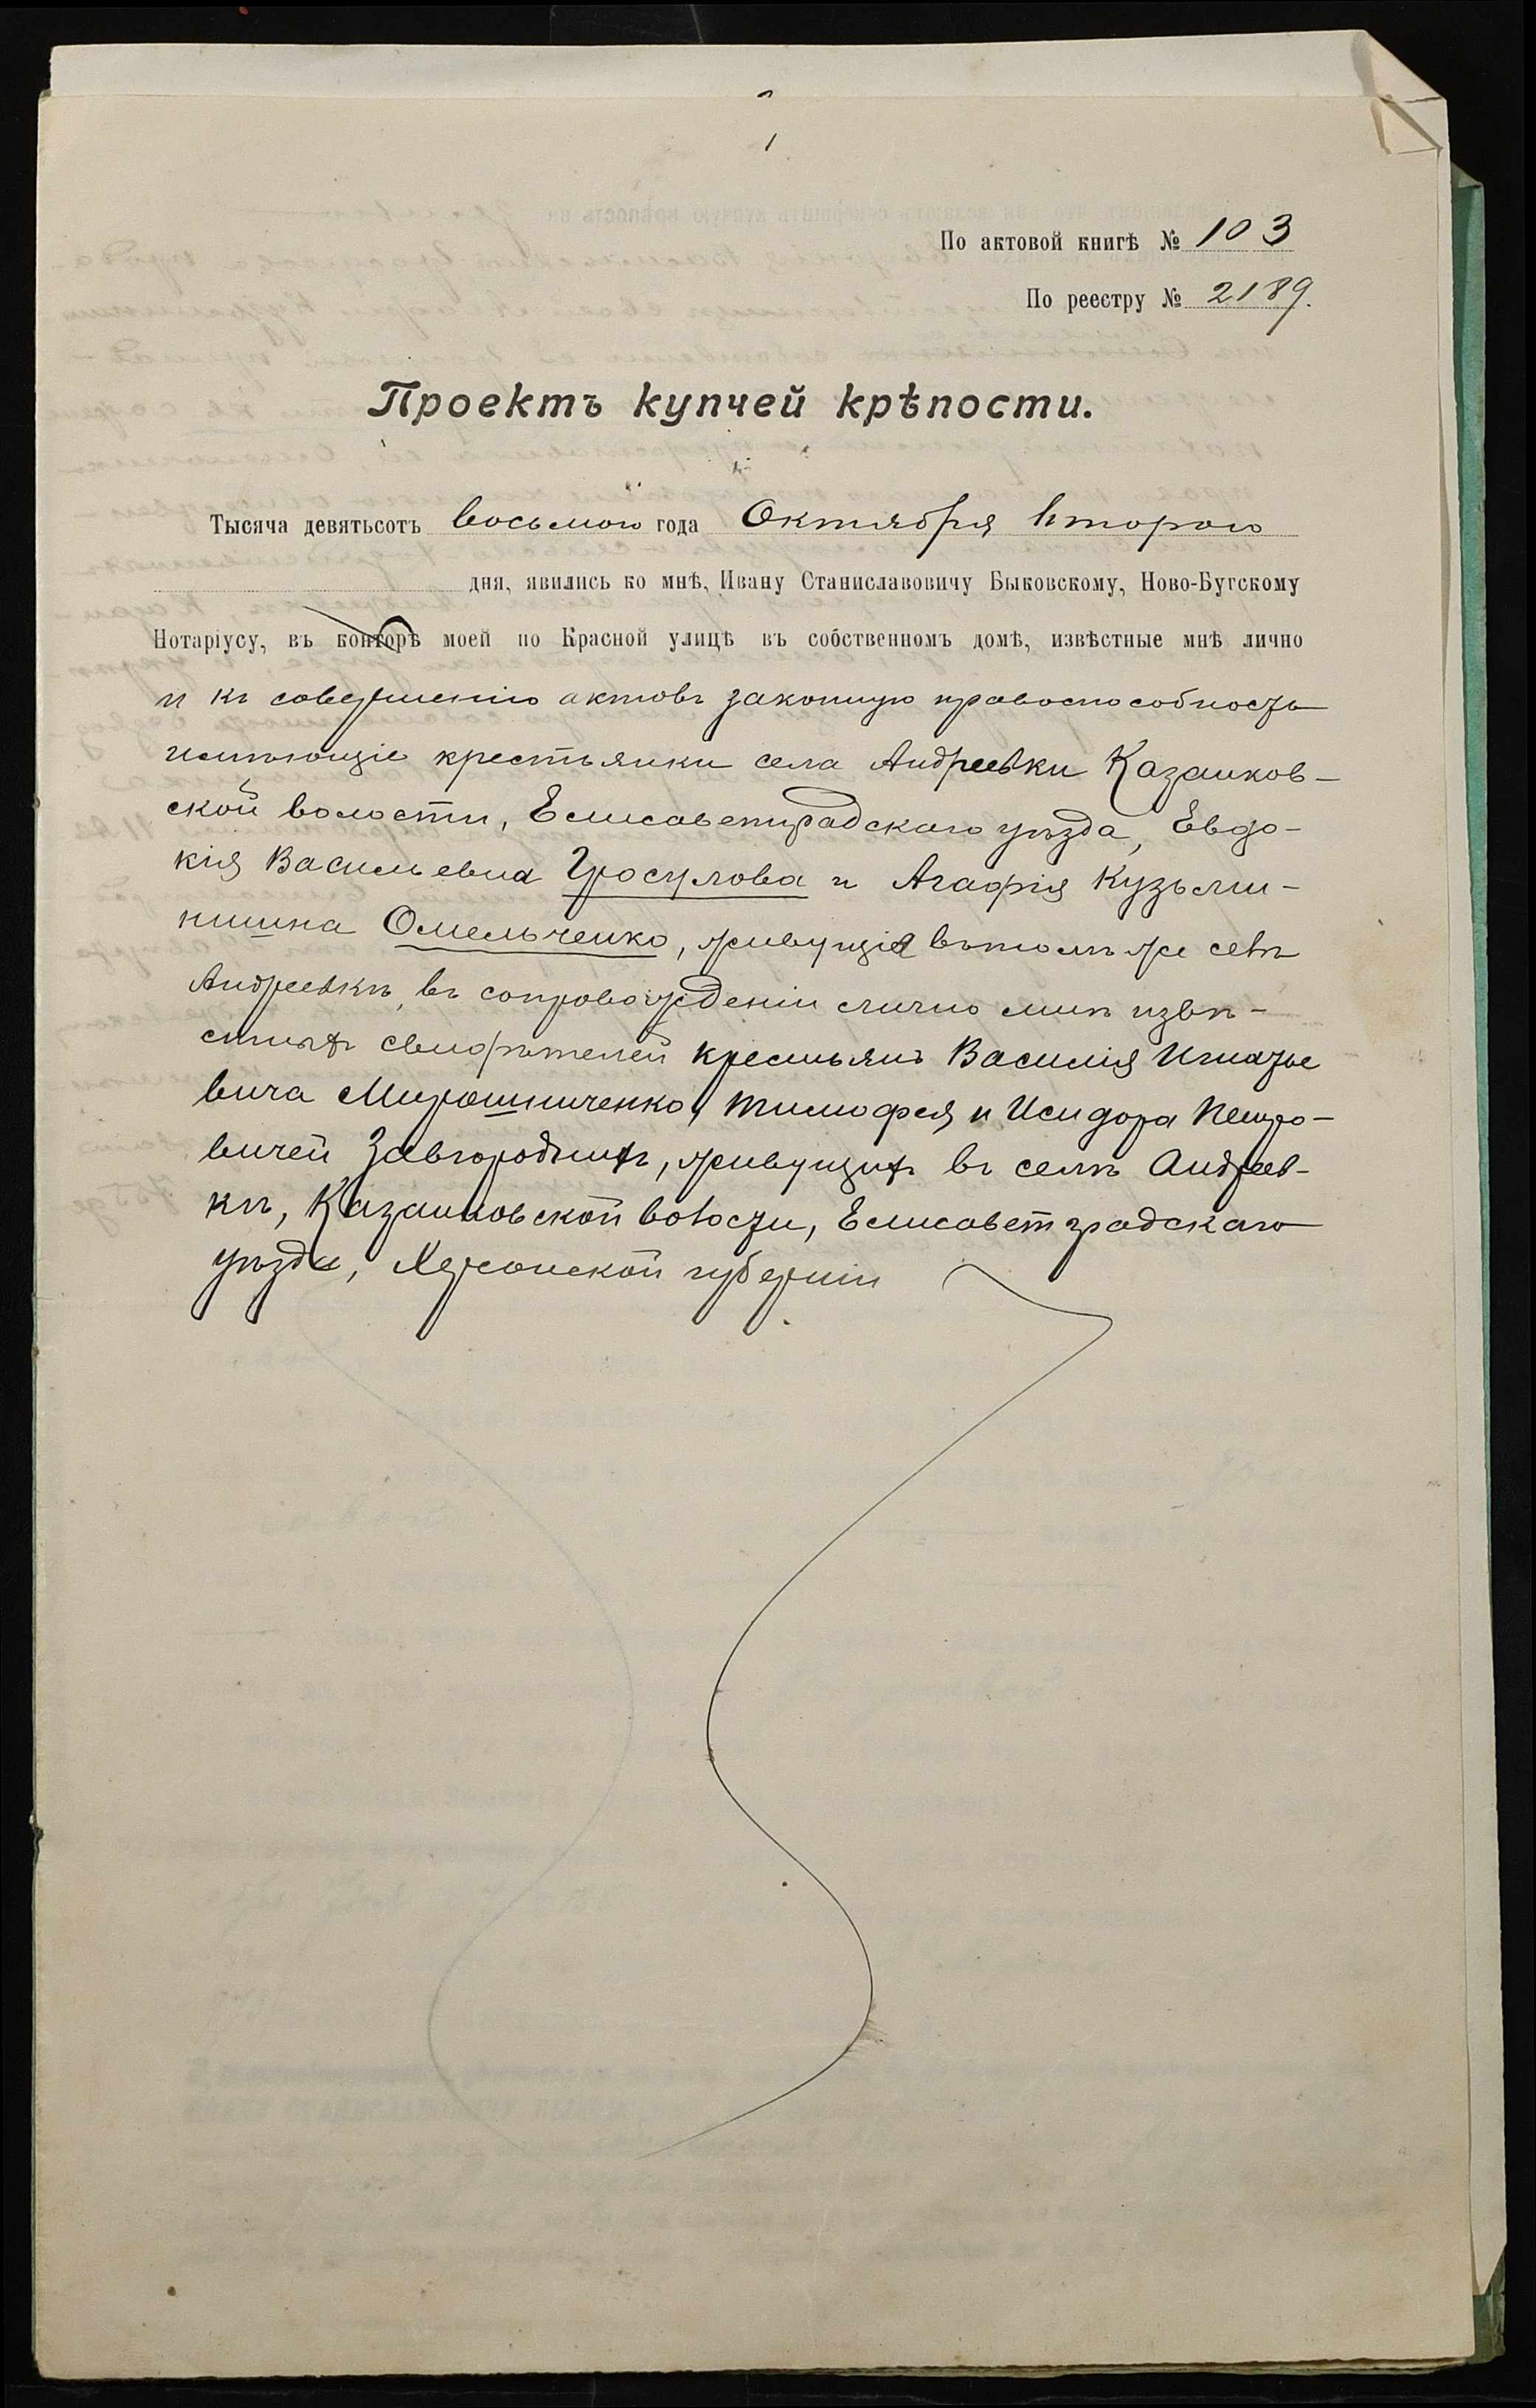 1
По актовой книгѣ № 103
По реестру № 2189.
Проектъ купчей крѣпости.
Тысяча девятьсотъ восьмого года Октября второго
дня, явились ко мнѣ, Ивану Станиславовичу Быковскому, Ново-Бугскому
Нотаріусу, въ конторѣ моей по Красной улицѣ въ собственномъ домѣ, извѣстные мнѣ лично
и къ совершенію актовъ законную правоспособность
имѣющіе крестьянки села Андреевки Казанков-
ской волости, Елисаветградскаго уѣзда, Евдо-
кія Васильевна Гросулова и Агафія Кузьми-
нишна Омельченко, живущія въ томъ же селѣ
Андреевкѣ, въ сопровожденіи лично мнѣ извѣ-
стныхъ свидѣтелей крестьянъ Василія Игнатье
вича Мирошниченко, Тимофея и Исидора Петро-
вичей Завгороднихъ, живущихъ въ селѣ Андреев-
кѣ, Казанковской волости, Елисаветградскаго
уѣзда, Херсонской губерніи